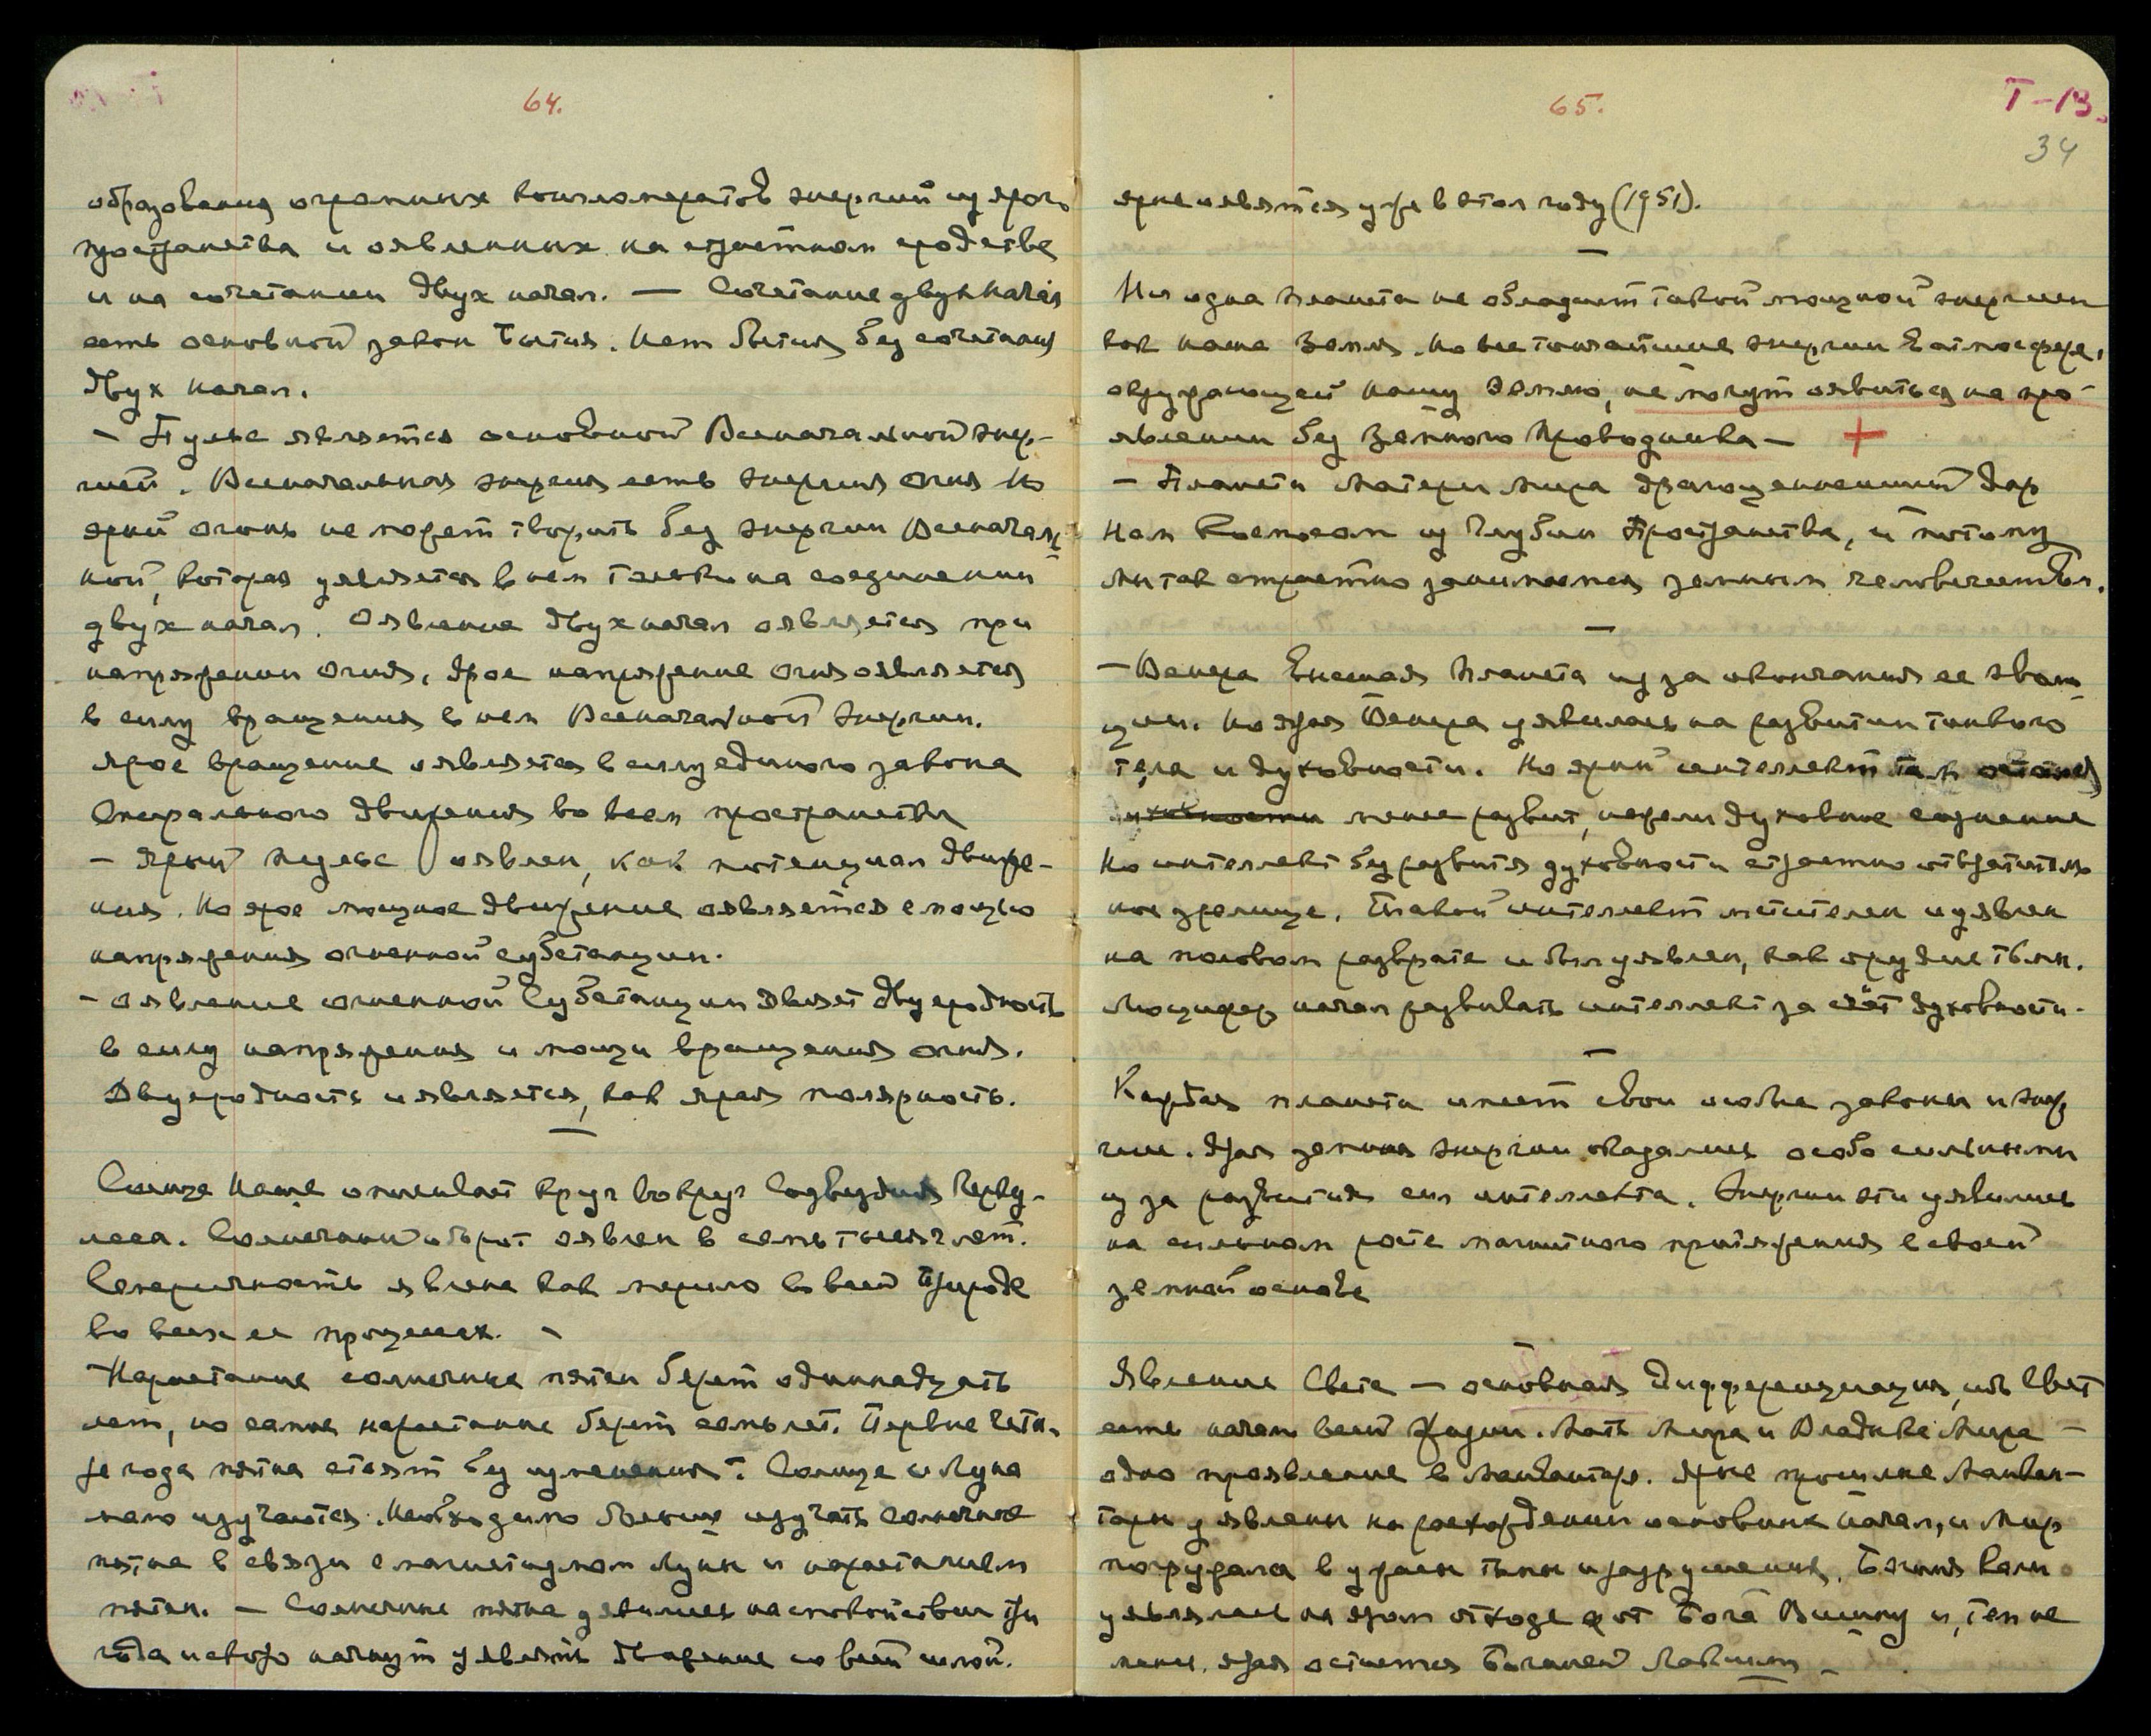 64.
образования огромных конгломератов энергий из ярого
пространства и оявленных на страстном сродстве
и на сочетании двух начал. — Сочетание двух начал
есть основной закон Бытия. Нет бытия без сочетания
двух начал.
— Пульс является основной Всеначальной энер-
гией. Всеначальная энергия есть энергия огня. Но
ярый огонь не может творить без энергии Всеначаль-
ной, которая уявляется в нем только на соединении
двух начал. Оявление двух начал оявляется при
напряжении огня. Ярое напряжение огня оявляется
в силу вращения в нем Всеначальной энергии.
Ярое вращение оявляется в силу единого закона
Спирального движения во всем пространстве
— Ярый пульс оявлен, как потенциал движе-
ния. Но ярое мощное движение оявляется с мощью
напряжения огненной субстанции.
— Оявление огненной Субстанции являет двуеродность
в силу напряжения и мощи вращения огня.
Двуеродность и является, как ярая полярность.
—
Солнце Наше описывает круг вокруг Созвездия Герку-
леса. Солнечный оборот оявлен в семь тысяч лет.
Семеричность явлена как мерило во всей Природе
во всех ее процессах. —
Нарастание солнечных пятен берет одиннадцать
лет, но самое нарастание берет семь лет. Первые четы-
ре года пятна стоят без изменения. Солнце и Луна
мало изучаются. Необходимо больше изучать солнечные
пятна в связи с магнетизмом Луны и нарастанием
пятен. — Солнечные пятна уявились на спокойствии три
года и скоро начнут уявлять движение со всей силой.
65.
Т-13.
34
ярые оявятся уже в этом году (1951).
—
Ни одна планета не обладает такой мощной энергией
как наша Земля. Но все тончайшие энергии в атмосфере,
окружающей нашу Землю, не могут оявиться на про-
явлении без Земного Проводника — +
— Планета Матери Мира драгоценнейший Дар
Нам Космосом из Глубин Пространства, и потому
Мы так страстно занимаемся земным человечеством.
—
— Венера Высшая Планета из за окончания ее эволю-
ции. Но ярая Венера уявилась на развитии тонкого
тела и духовности. Но ярый интеллект там
менее развит, нежели духовное сознание
Но интеллект без развития духовности страстно отвратитель
ное зрелище. Такой интеллект мстителен и уявлен
на половом разврате и был уявлен, как орудие тьмы.
Люцифер начал развивать интеллект за счёт духовности.
—
Каждая планета имеет свои особые законы и энер
гии. Ярая земная энергии оказались особо сильными
из за развития сил интеллекта. Энергии эти уявились
на сильном росте магнитного притяжения с своей
земной основе
—
Явление Света — основная Дифференциация, ибо Свет
есть начало всей Жизни. Мать Мира и Владыка Мира —
одно проявление в Манвантаре. Ярые прошлые Манван-
тары уявлены на расхождении основных начал, и Мир
погружался в ужасы тьмы и разрушения. Богиня Кали
уявлялась на яром отходе от Бога Вишну и, тем не
менее, ярая остается Богиней Лакшми —